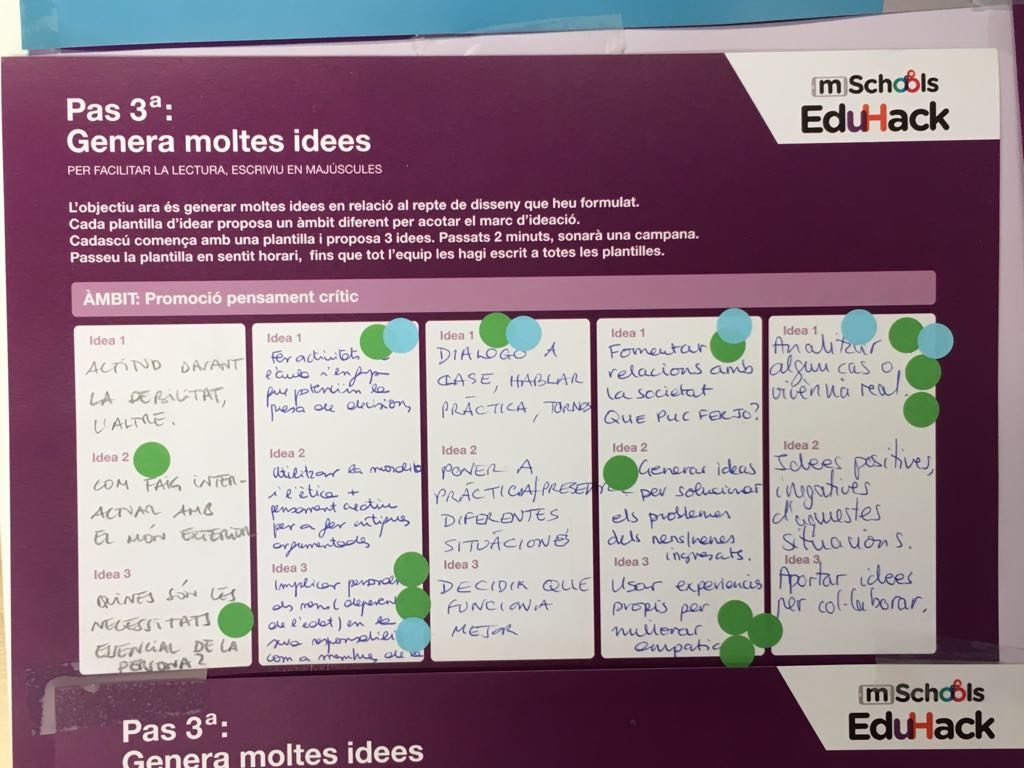 Pas 3ª:
Genera moltes idees
PER FACILITAR LA LECTURA, ESCRIVIU EN MAJÚSCULES
[m] Schools
EduHack
L'objectiu ara és generar moltes idees en relació al repte de disseny que heu formulat.
Cada plantilla d'idear proposa un àmbit diferent per acotar el marc d'ideació.
Cadascú comença amb una plantilla i proposa 3 idees. Passats 2 minuts, sonarà una campana.
Passeu la plantilla en sentit horari, fins que tot l'equip les hagi escrit a totes les plantilles.
ÀMBIT: Promoció pensament crític
Idea 1
DAVANT
LA DEBILITAT,
L'ALTRE.
Idea 2
COM FAIG INTER-
ACTUAR AMB
EL MÓN EXTERIOR
Idea 3
QUINES SÓN LES
NECESSITATS
ESENCIAL DE LA
PERSONA?
Idea 1
Fer activitats
que potenciïn la
presa de decisions
Idea 2
Utilitzar la
i l'ètica +
pensament creatiu
per a fer crítiques
argumentades
Idea 3
Implicar
als nens (
de l'edat) en la
seva
com a membres de la
Idea 1
DIALOGO A
CASE, HABLAR
PRÀCTICA, TORNOS
Idea 2
PONER A
PRÀCTICA/
DIFERENTES
SITUACIONES
Idea 3
DECIDIR QUE
FUNCIONA
MEJOR
Idea 1
Fomentar
relacions amb
la societat
QUE PUC FER JO?
Idea 2
Generar ideas
per solucionar
els problemes
dels nens/nenes
ingressats.
Idea 3
Usar experiencias
propis per
millorar
empatia
Idea 1
Analitzar
algun cas o
vivència real.
Idea 2
Idees positives,
negatives
d'aquestes
situacions.
Idea 3
Aportar idees
per col·laborar.
[m] Schools
EduHack
Pas 3ª:
Genera moltes idees